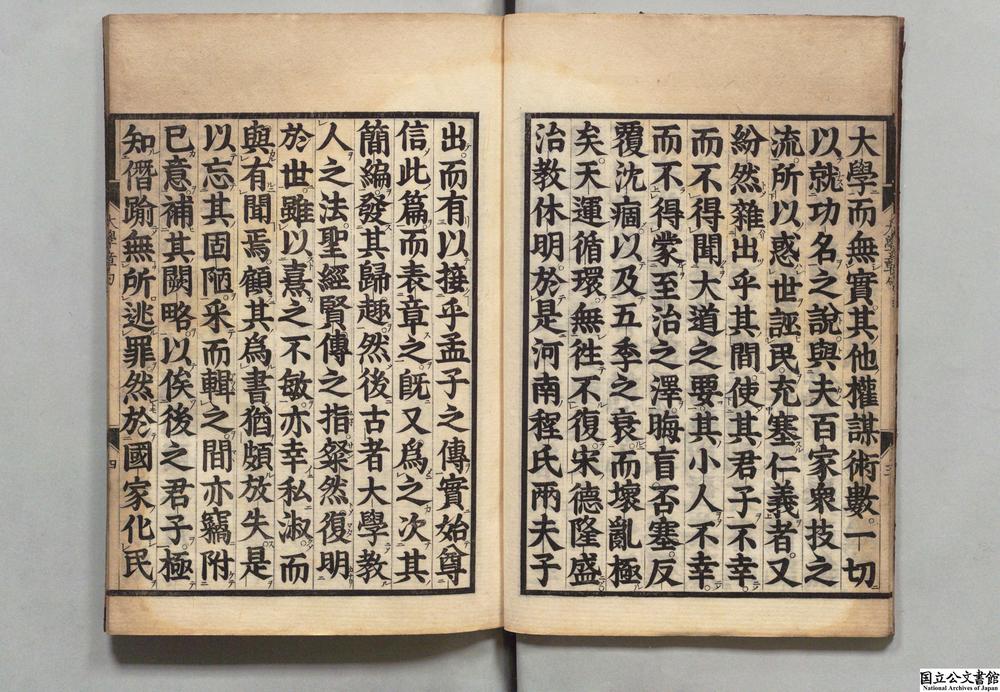 大學而無實其他權謀術數一切
以就功名之說與夫百家衆技之
流所以惑世誣民充塞仁義者又
紛然雜出乎其間使其君子不幸
而不得聞大道之要其小人不幸
而不得蒙至治之澤晦盲否塞反
覆沈痼以及五季之衰而壞亂極
矣天運循環無徃不復宋德隆盛
治教休明於是河南程氏兩夫子
出而有以接乎孟子之傳實始尊
信此篇而表章之旣又爲之次其
簡編發其歸趣然後古者大學教
人之法聖經賢傳之指粲然復明
於世雖以熹之不敏亦幸私淑而
與有聞焉顧其爲書猶頗放失是
以忘其固陋采而輯之間亦竊附
已意補其闕略以俟後之君子極
知僭踰無所逃罪然於國家化民
三
大學章句
四
国立公文書館
National Archives of Japan